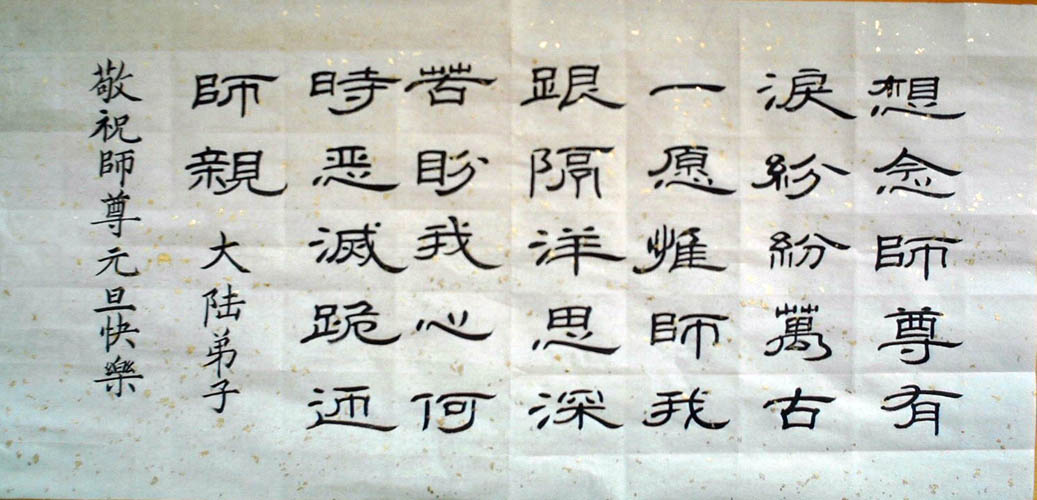 想念師尊有
淚紛紛萬古
一愿惟師我
跟隔洋思深
苦盼我心何
時恶滅跪迎
師親 大陸弟子
敬祝師尊元旦快樂